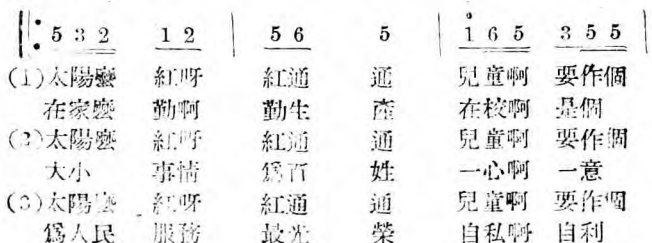 5 3 2 1 2 | 5 6 5 | 1 6 5 3 5 5 |
(1)太陽麼 紅呀 紅通 通 兒童啊 要作個
在家麼 勤啊 勤生 產 在校啊 是個
(2)太陽麼 紅呀 紅通 通 兒童啊 要作個
大小 事情 爲百 姓 一心啊 一意
(3)太陽麼 紅呀 紅通 通 兒童啊 要作個
爲人民 服務 最光 榮 自私啊 自利